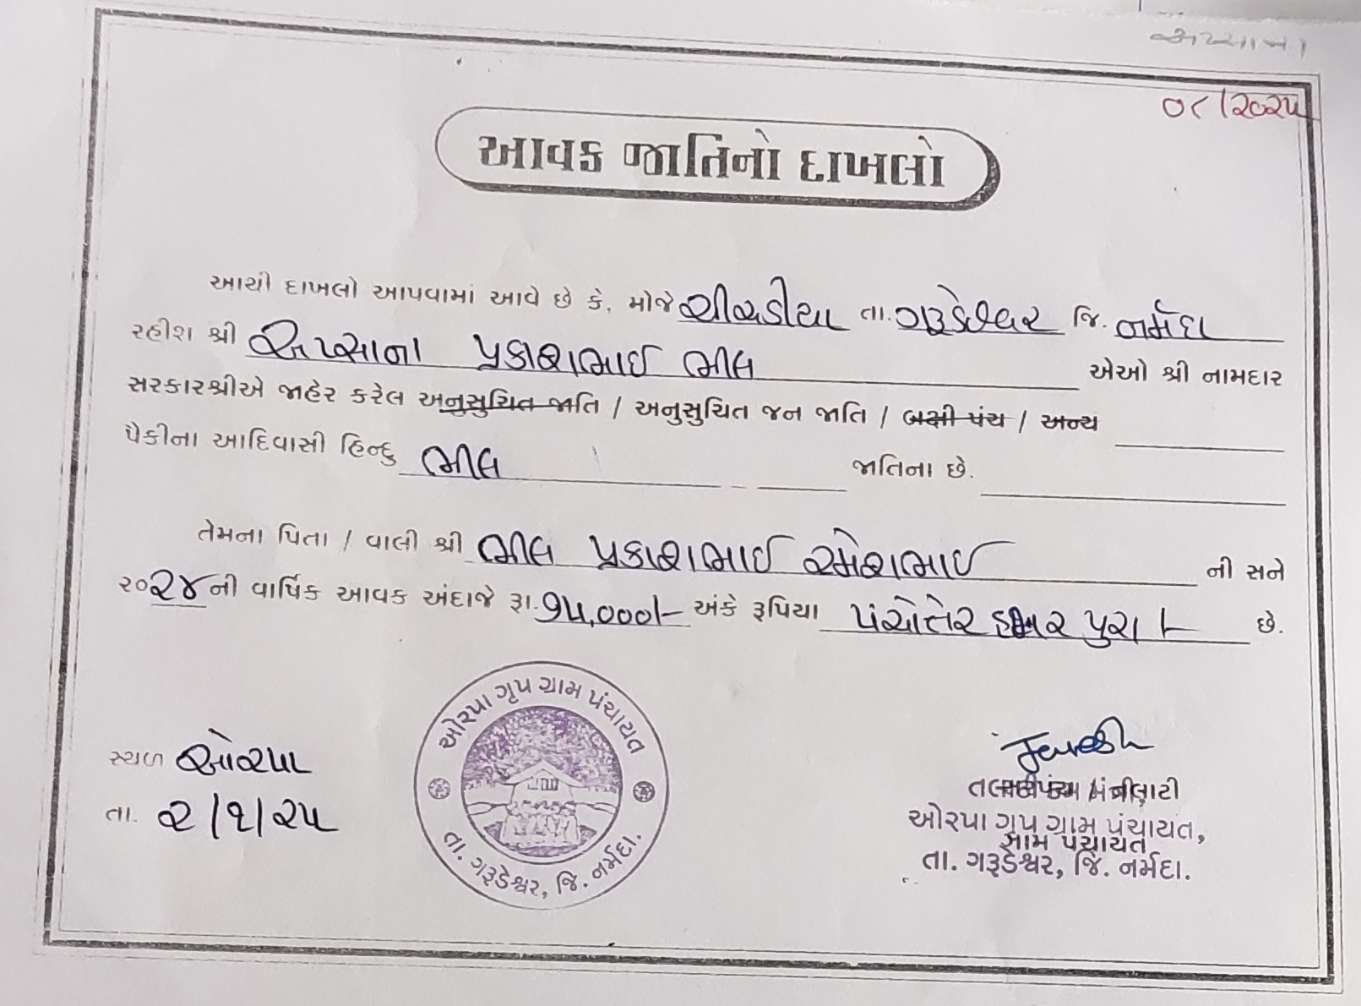 ૦૮/૨૦૨૫
આવક જાતિનો દાખલો
આથી દાખલો આપવામાં આવે છે કે, મોજે ચીચડીયા તા. ગરૂડેશ્વર જિ. નર્મદા
રહીશ શ્રી અફસાના પ્રકાશભાઈ ભીલ એઓ શ્રી નામદાર
સરકારશ્રીએ જાહેર કરેલ અનુસુચિત જાતિ / અનુસુચિત જન જાતિ / બક્ષી પંચ / અન્ય
પૈકીના આદિવાસી હિન્દુ ભીલ જાતિના છે.
તેમના પિતા / વાલી શ્રી ભીલ પ્રકાશભાઈ રમેશભાઈ ની સને
૨૦૨૪ ની વાર્ષિક આવક અંદાજે રૂા. ૭૫,૦૦૦/- અંકે રૂપિયા પંચોતેર હજાર પુરા /- છે.
સ્થળ ઓરપા
તા. ૨/૧/૨૫
ઓરપા ગૃપ ગ્રામ પંચાયત
તા. ગરૂડેશ્વર, જિ. નર્મદા.
ઓરપા ગૃપ ગ્રામ પંચાયત,
ગ્રામ પંચાયત
તા. ગરૂડેશ્વર, જિ. નર્મદા.